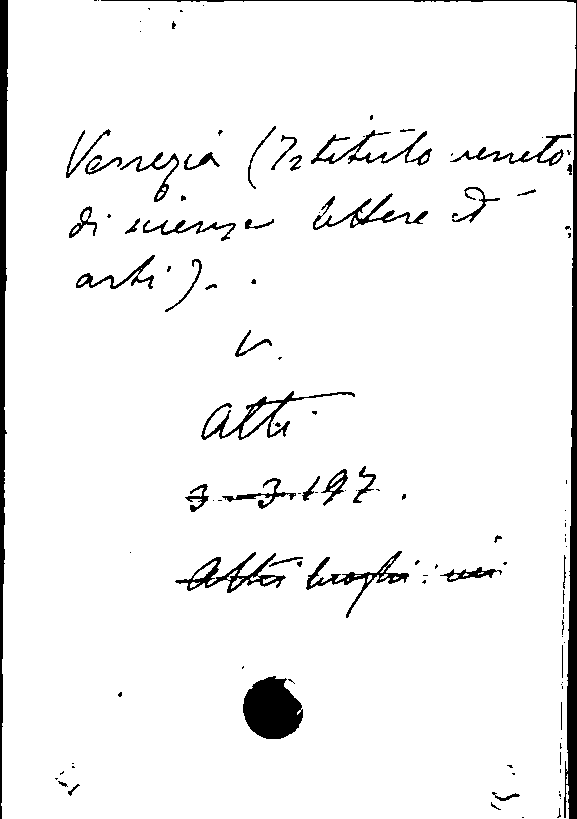 Venezia (Istituto veneto
di scienze lettere ed
arti).
v.
Atti
3-3.197.
Altri luoghi: ivi